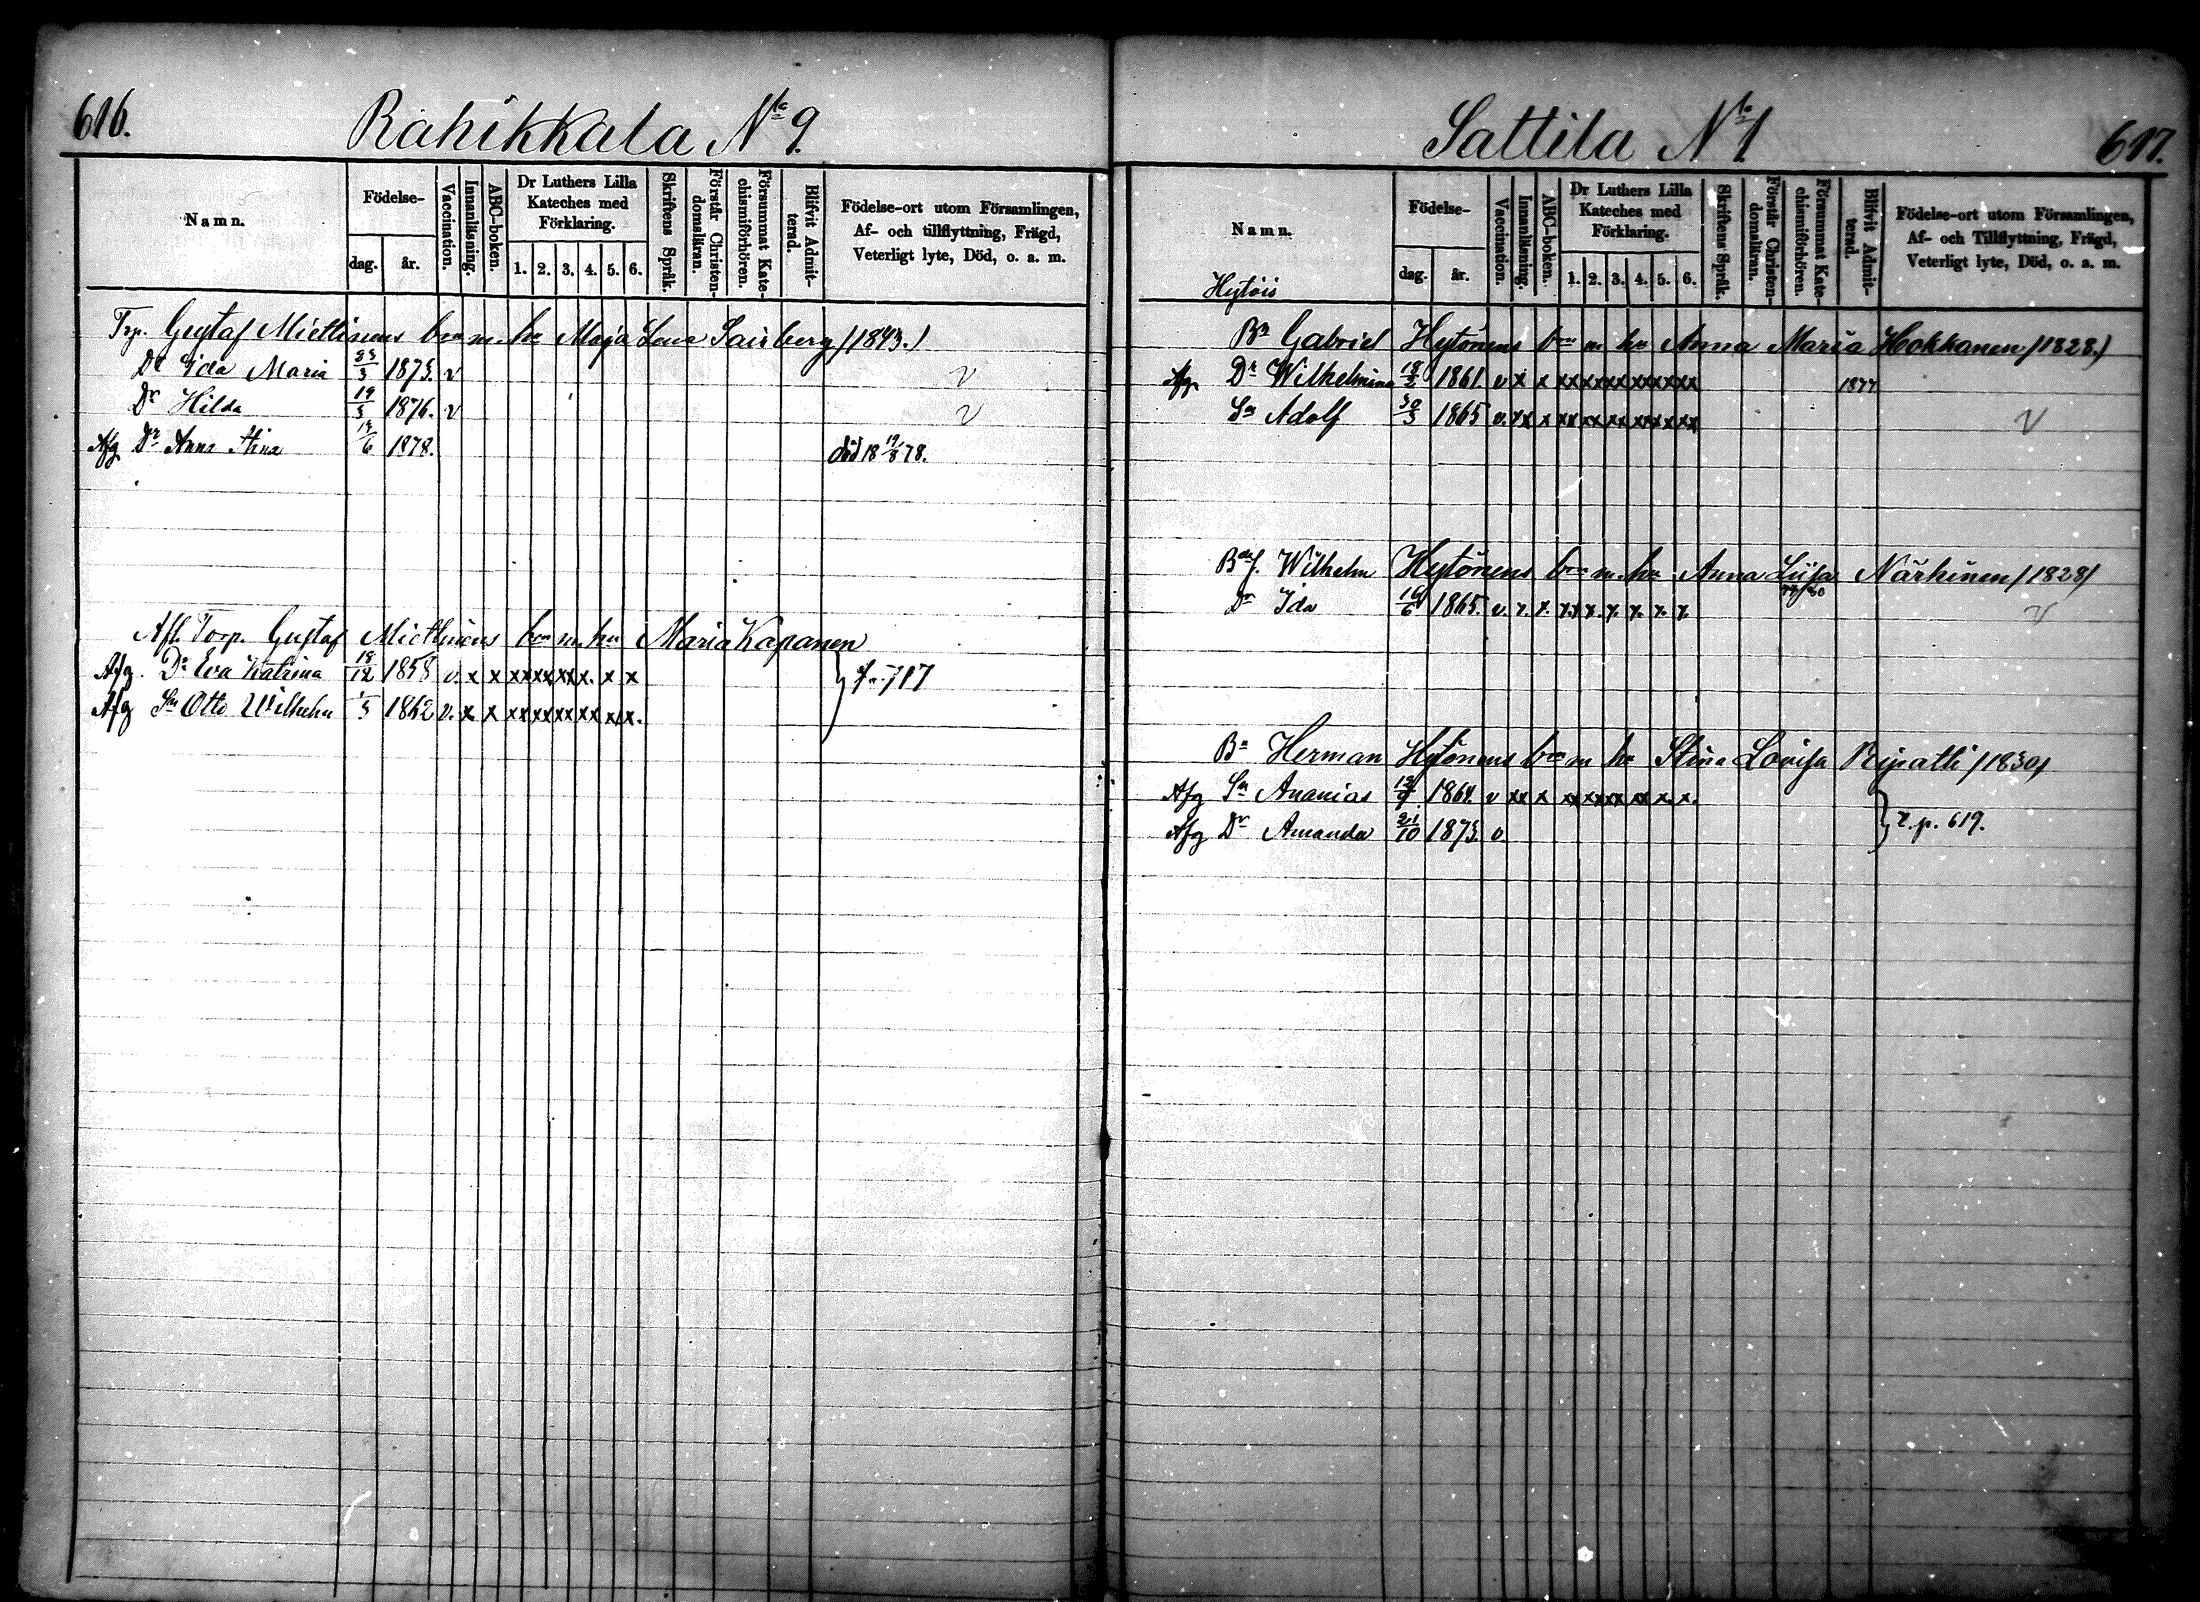 616.
Rahikkala No 9.
Namn.
Födelse-
dag.
år.
Vaccination.
Innanläsning.
ABC-boken.
Dr Luthers Lilla
Kateches med
Förklaring.
1. 2. 3. 4. 5. 6.
Skriftens Språk.
Förstår Christen-
domsläran.
Försummat Kate-
chismiförhören.
Blifvit Admit-
terad.
Födelse-ort utom Församlingen,
Af- och tillflyttning, Frägd,
Veterligt lyte, Död, o. a. m.
Trp. Gustaf Miettinens bn m. hu Maja Lena Sairberg /1843./
Dr Ida Maria 23/3 1873. v v
Dr Hilda 19/3 1876. v v
Afg Dr Anna Stina 14/6 1878. död 18 19/8 78.
Afl. Torp. Gustaf Miettinens bn m. hu Maria Kapanen
Afg. Dr Eva Katrina 18/12 1858 v. x x x x x x x x. x x
Afg Sn Otto Wilhelm /3 1862 v. x x x x x x x x x x.
717
Sattila No 1
617.
Namn.
Hytöis
Födelse-
dag.
år.
Vaccination.
Innanläsning.
ABC-boken.
Dr Luthers Lilla
Kateches med
Förklaring.
1. 2. 3. 4. 5. 6.
Skriftens Språk.
Förstår Christen-
domsläran.
Försummat Kate-
chismiförhören.
Blifvit Admit-
terad.
Födelse-ort utom Församlingen,
Af- och Tillflyttning, Frägd,
Veterligt lyte, Död, o. a. m.
Bn Gabriel Hytönens bn m hu Anna Maria Hokkanen /1828./
Afg. Dr Wilhelmina 18/3 1861. v x x x x x x x x x x x x 1877
Sn Adolf 30/3 1865 v. x x x x x x x x x x x x v
Wilhelm Hytönens bn m. hu Anna Liisa Närhinen /1828/
Dr Ida 16/6 1865. v. x. x. x x x. x. x. x. x. v
Bn Herman Hytönens bn m hu Stina Lovisa Pijatti /1830/
Afg Sn Ananias 1864. v x x x x x x x x x x x. x.
Afg Dr Amanda 21/10 1873. v.
r. p. 619.